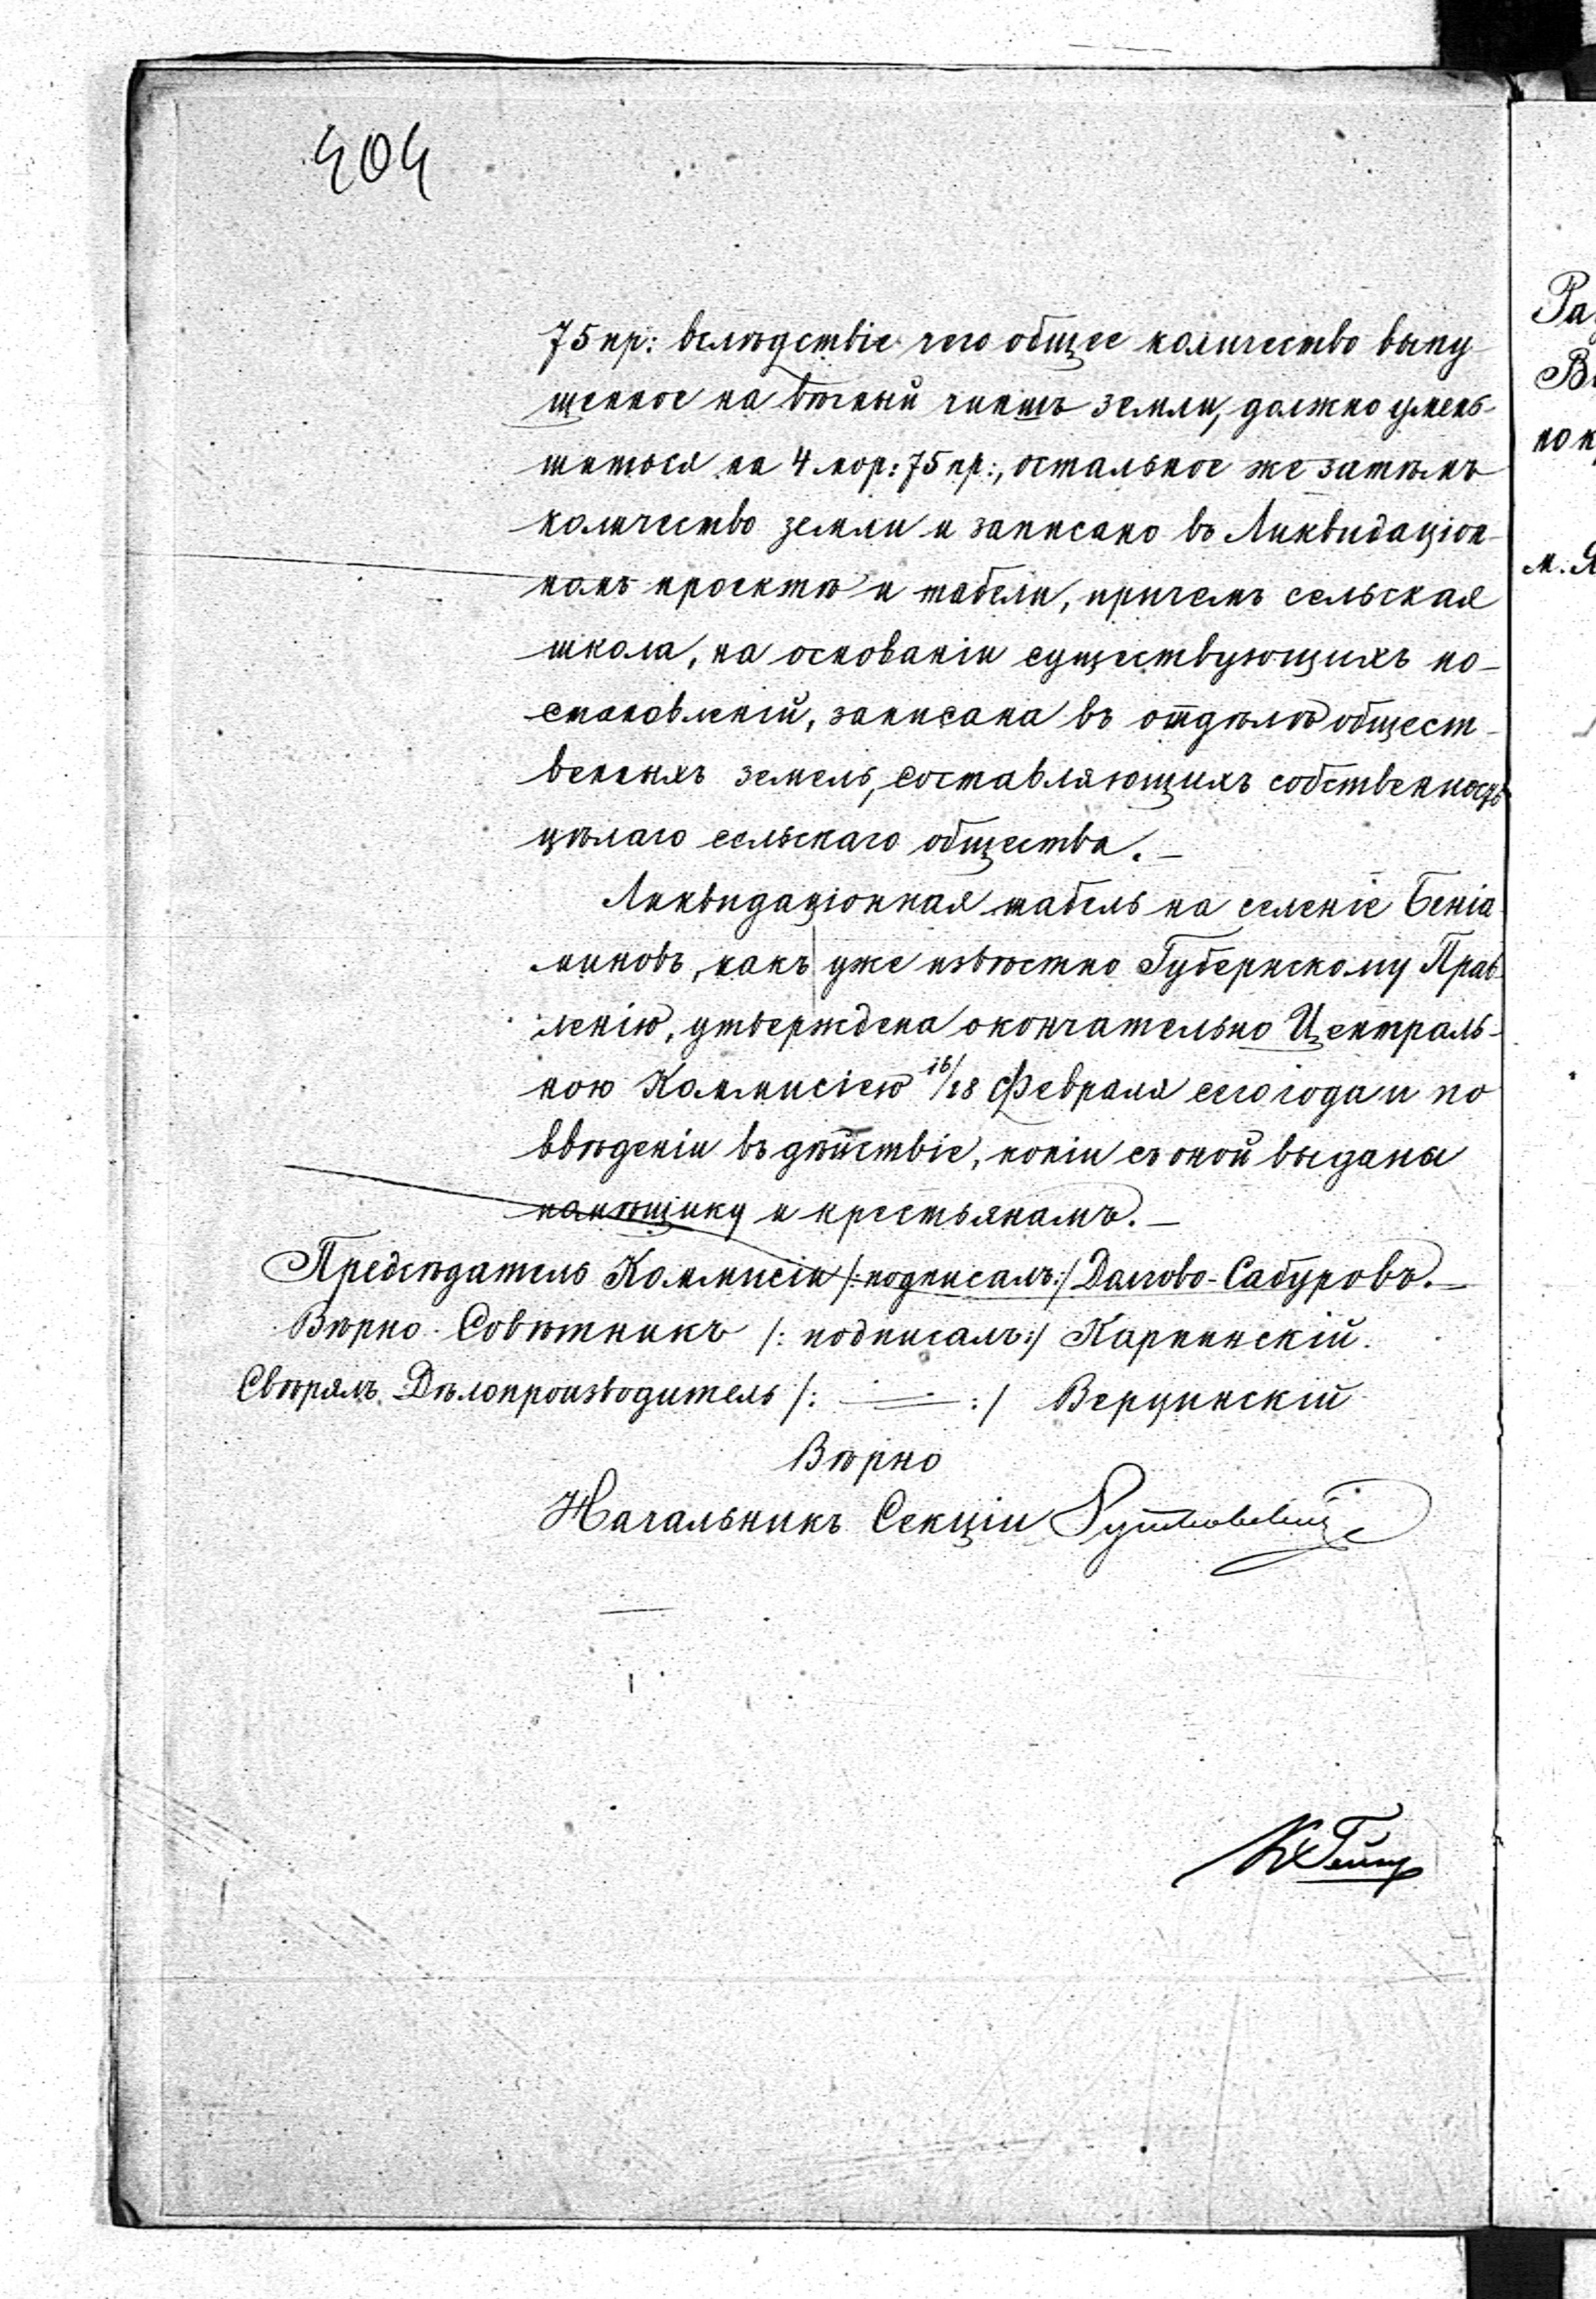 404
75 пр: вслѣдствіе чего общее количество выпу
щенное на вѣчный чиншъ земли, должно умень-
шиться на 4 мор: 75 пр:, остальное же затѣмъ
количество земли и записано въ Ликвидаціон-
номъ проектѣ и табели, причемъ сельская
школа, на основаніи существующихъ по-
становленій, записана въ отдѣлѣ общест-
венныхъ земель, составляющихъ собственность
цѣлаго сельскаго общества. —
Ликвидаціонная табель на селеніе Беніа
миновъ, какъ уже извѣстно Губернскому Прав
ленію, утверждена окончательно Централь-
ною Коммисіею 16/28 Февраля сего года и по
введеніи въ дѣйствіе, копіи съ оной выданы
помѣщику и крестьянамъ. —
Предсѣдатель Коммисіи /:подписалъ:/ Дагово-Сабуровъ. —
Вѣрно Совѣтникъ /: подписалъ:/ Карпинскій.
Свѣрялъ Дѣлопроизводитель /: — :/ Верцинскій
Вѣрно
Начальникъ Секціи
Ра
В
по к
м. Я